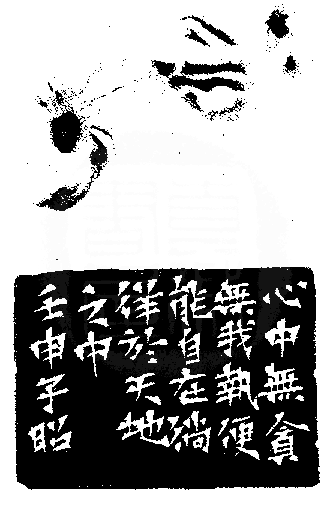 心中無貪
無我執便
能自在徜
徉於天地
之中
壬申子昭